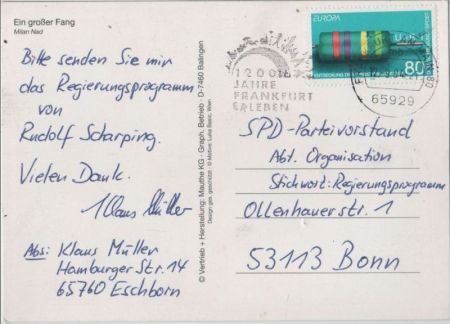 Ein großer Fang
Milan Nad
Bitte senden Sie mir
das Regierungsprogramm
von
Rudolf Scharping.
Vielen Dank.
Klaus Müller
Abs: Klaus Müller
Hamburger Str. 14
65760 Eschborn
© Vertrieb + Herstellung: Mauthe KG - Graph. Betrieb - D-7460 Balingen
EUROPA
80
1200
JAHRE
FRANKFURT
ERLEBEN
65929
SPD-Parteivorstand
Abt. Organisation
Stichwort: Regierungsprogramm
Ollenhauerstr. 1
53113 Bonn